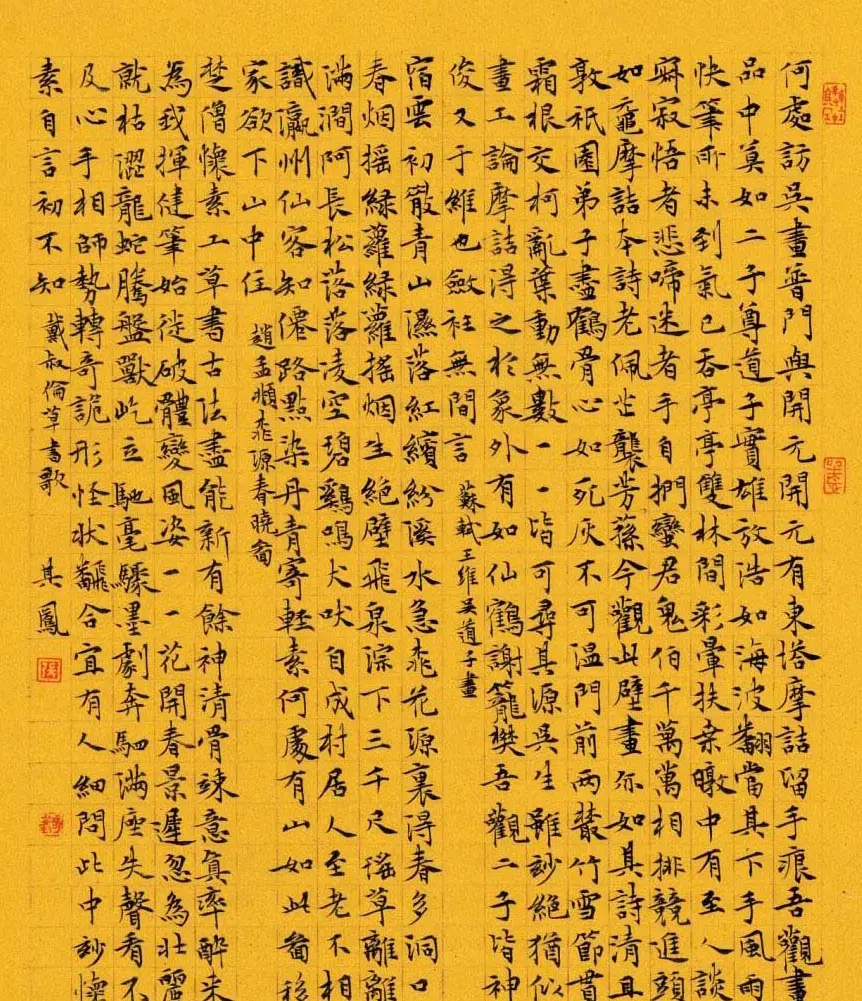 何處訪吳畫普門與開元開元有東塔摩詰留手痕吾觀畫
品中莫如二子尊道子實雄放浩如海波翻當其下手風雨
快筆所未到氣已吞亭亭雙林間彩暈扶桑暾中有至人談
寐寂悟者悲啼迷者手自捫蠻君鬼伯千萬萬相排競進頭
如黿摩詰本詩老佩芷襲芳蓀今觀此壁畫亦如其詩清且
敦祇園弟子盡鶴骨心如死灰不可溫門前兩叢竹雪節貫
霜根交柯亂葉動無數一一皆可尋其源吳生雖妙絕猶似
畫工論摩詰得之於象外有如仙鶴謝籠樊吾觀二子皆神
俊又于維也斂衽無間言 蘇軾王維吳道子畫
宿雲初散青山濕落紅繽紛溪水急桃花源裏得春多洞口
春烟搖綠蘿綠蘿搖烟生絕壁飛泉淙下三千尺瑤草離離
滿澗阿長松落落凌空碧鷄鳴犬吠自成村居人至老不相
識瀛州仙客知僊路點染丹青寄輕素何處有山如此畵移
家欲下山中住 趙孟頫桃源春曉畵
楚僧懷素工草書古法盡能新有餘神清骨竦意真率醉來
為我揮健筆始從破體變風姿一一花開春景遲忽為壯麗
就枯澀龍蛇騰盤獸屹立馳毫驟墨劇奔駟滿座失聲看不
及心手相師勢轉奇詭形怪狀翻合宜有人細問此中妙懷
素自言初不知 戴叔倫草書歌 其鳳